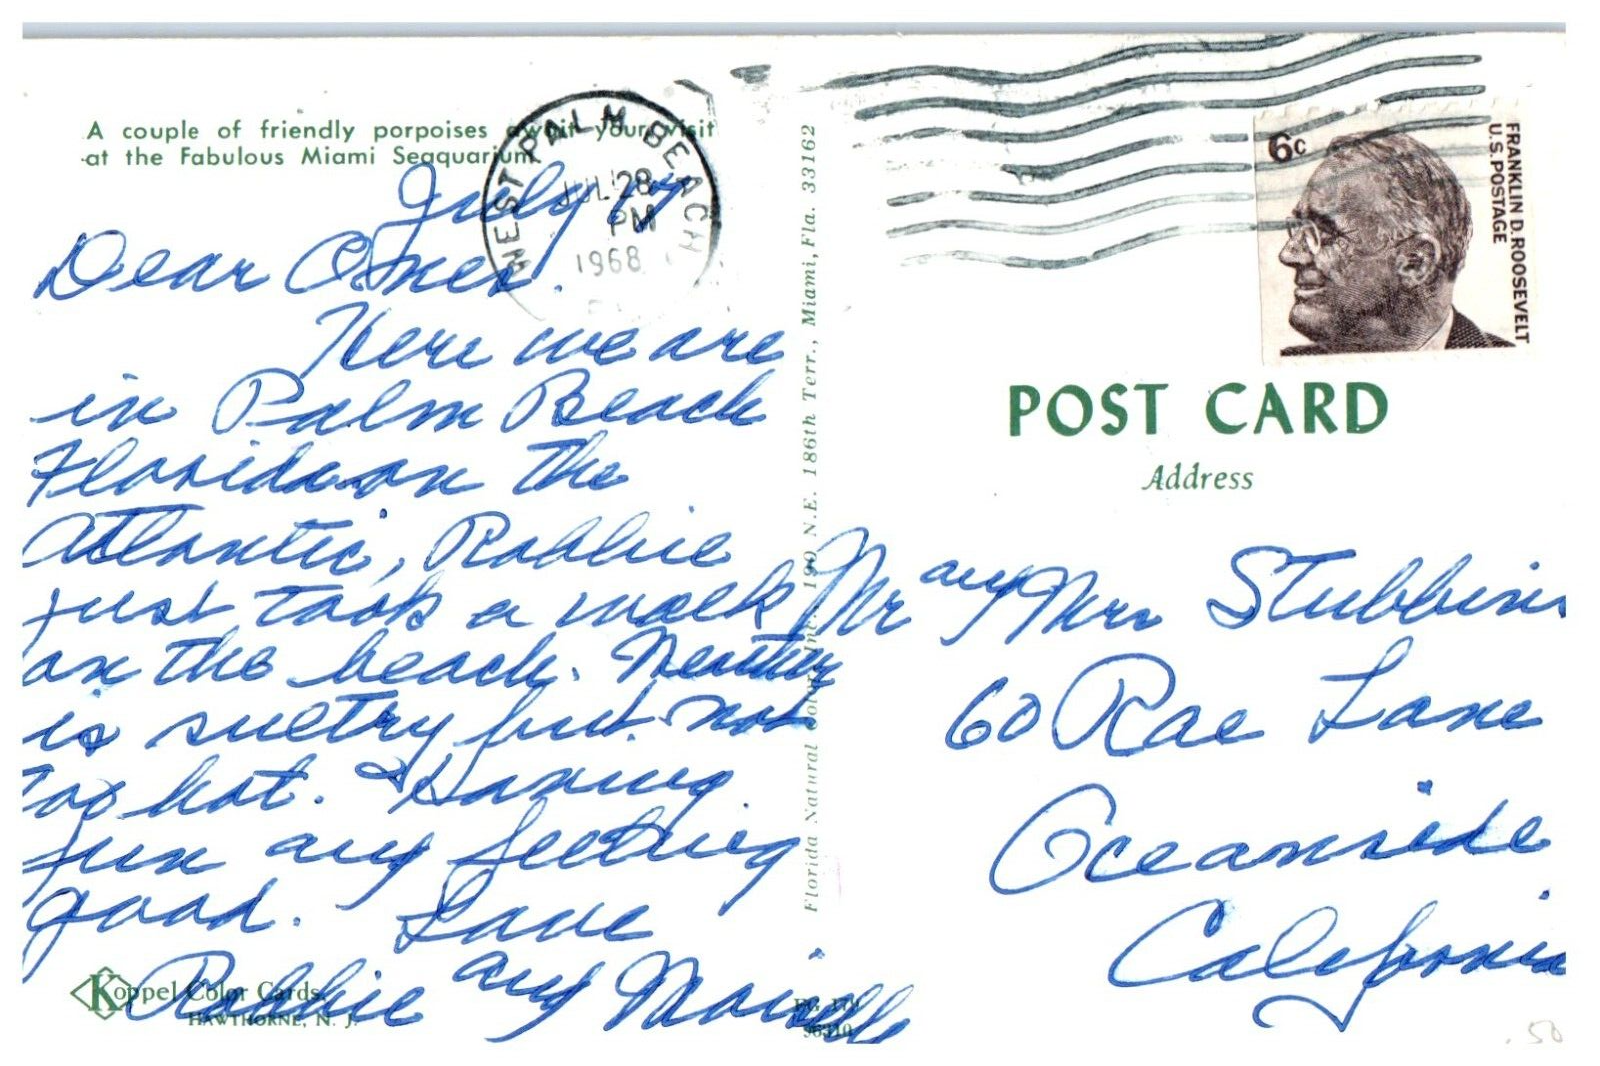 A couple of friendly porpoises await your visit
at the Fabulous Miami Seaquarium.
WEST PALM BEACH
JUL 28
PM
1968
6c
FRANKLIN D. ROOSEVELT
U.S. POSTAGE
July
Dear
Here we are
in Palm Beach
Florida on the
Atlantic, Robbie
just took a walk
on the beach. Weather
is sultry but not
too hot. Having
fun and feeling
good. Love
Robbie and
POST CARD
Address
Mr and Mrs Stubbins
60 Rae Lane
Oceanside
California
Florida Natural Color, Inc. 190 N.E. 186th Terr., Miami, Fla. 33162
Koppel Color Cards
HAWTHORNE, N. J.
.50